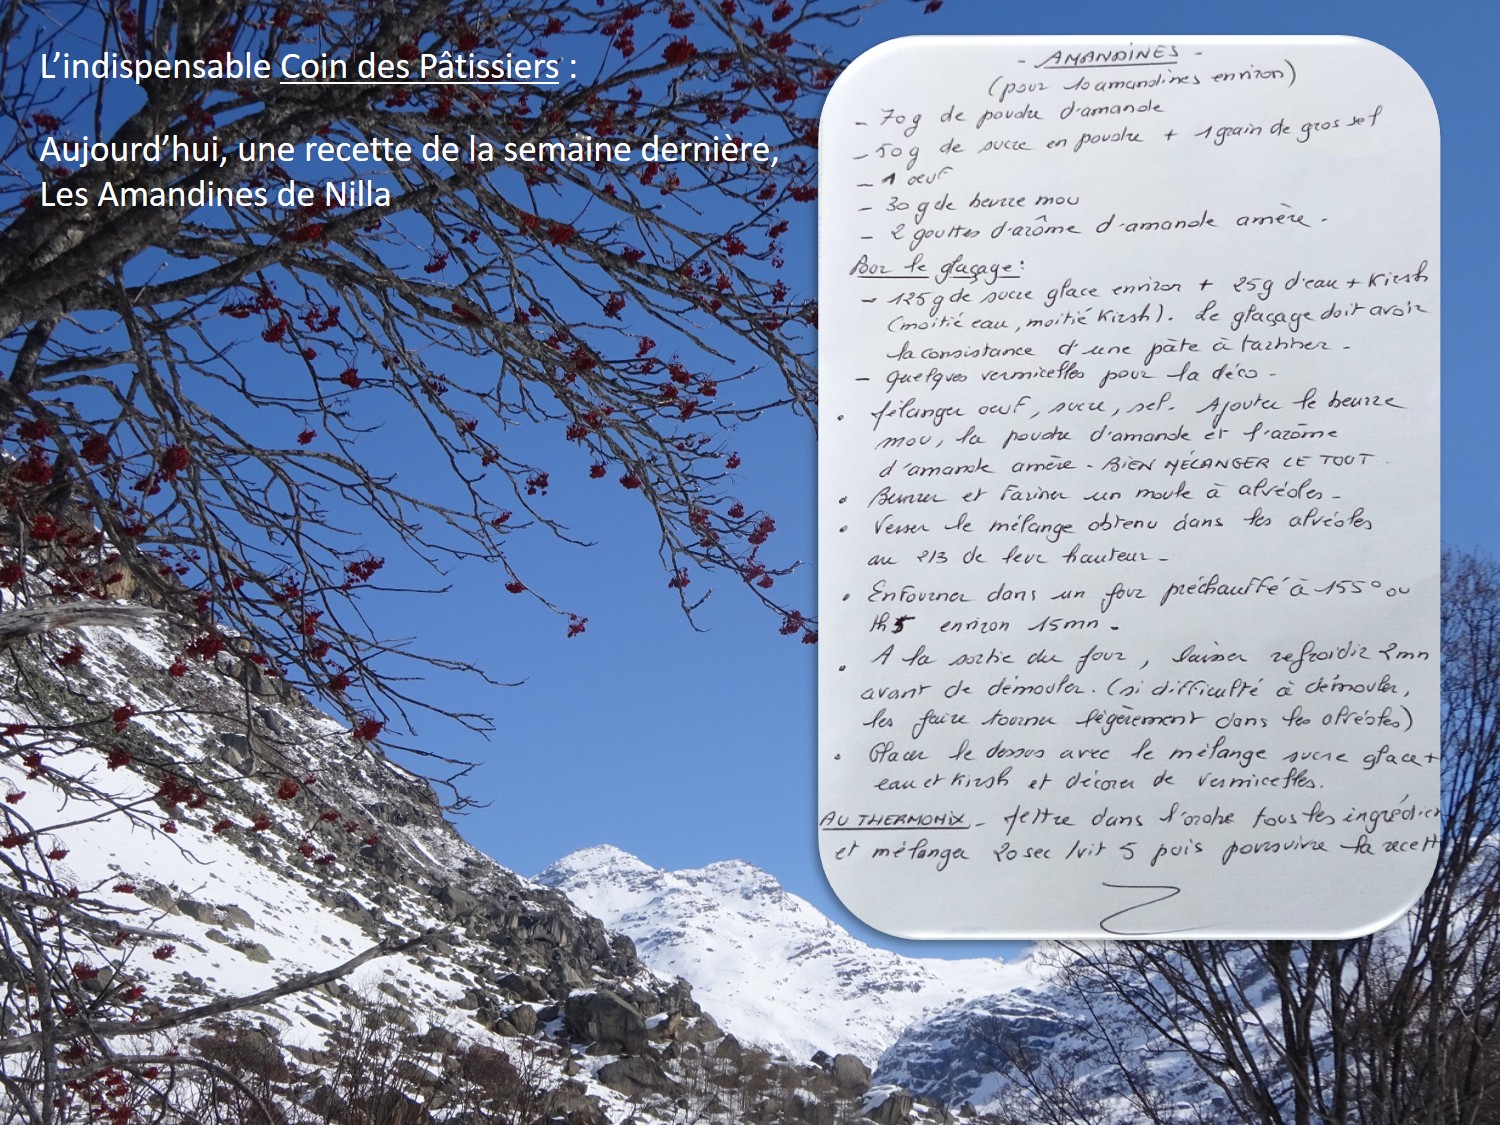 L'indispensable Coin des Pâtissiers :
Aujourd'hui, une recette de la semaine dernière,
Les Amandines de Nilla
- AMANDINES -
(pour 10 amandines environ)
- 70g de poudre d'amande
- 50g de sucre en poudre + 1 grain de gros sel
- 1 oeuf
- 30 g de beurre mou
- 2 gouttes d'arôme d'amande amère.
Pour le glaçage :
- 125g de sucre glace environ + 25g d'eau + Kirsh
(moitié eau, moitié Kirsh). Le glaçage doit avoir
la consistance d'une pâte à tartiner -
- quelques vermicelles pour la déco -
• Mélanger oeuf, sucre, sel. Ajouter le beurre
mou, la poudre d'amande et l'arôme
d'amande amère - BIEN MÉLANGER LE TOUT.
• Beurrer et Fariner un moule à alvéoles -
• Verser le mélange obtenu dans les alvéoles
au 2/3 de leur hauteur -
• Enfourner dans un four préchauffé à 155° ou
th 5 environ 15mn -
• A la sortie du four, laisser refroidir 2mn
avant de démouler. (si difficulté à démouler,
les faire tourner légèrement dans les alvéoles)
• Glacer le dessus avec le mélange sucre glace +
eau et Kirsh et décorer de vermicelles.
AU THERMOMIX - Mettre dans l'ordre tous les ingrédien
et mélanger 20 sec /vit 5 puis poursuivre la recett